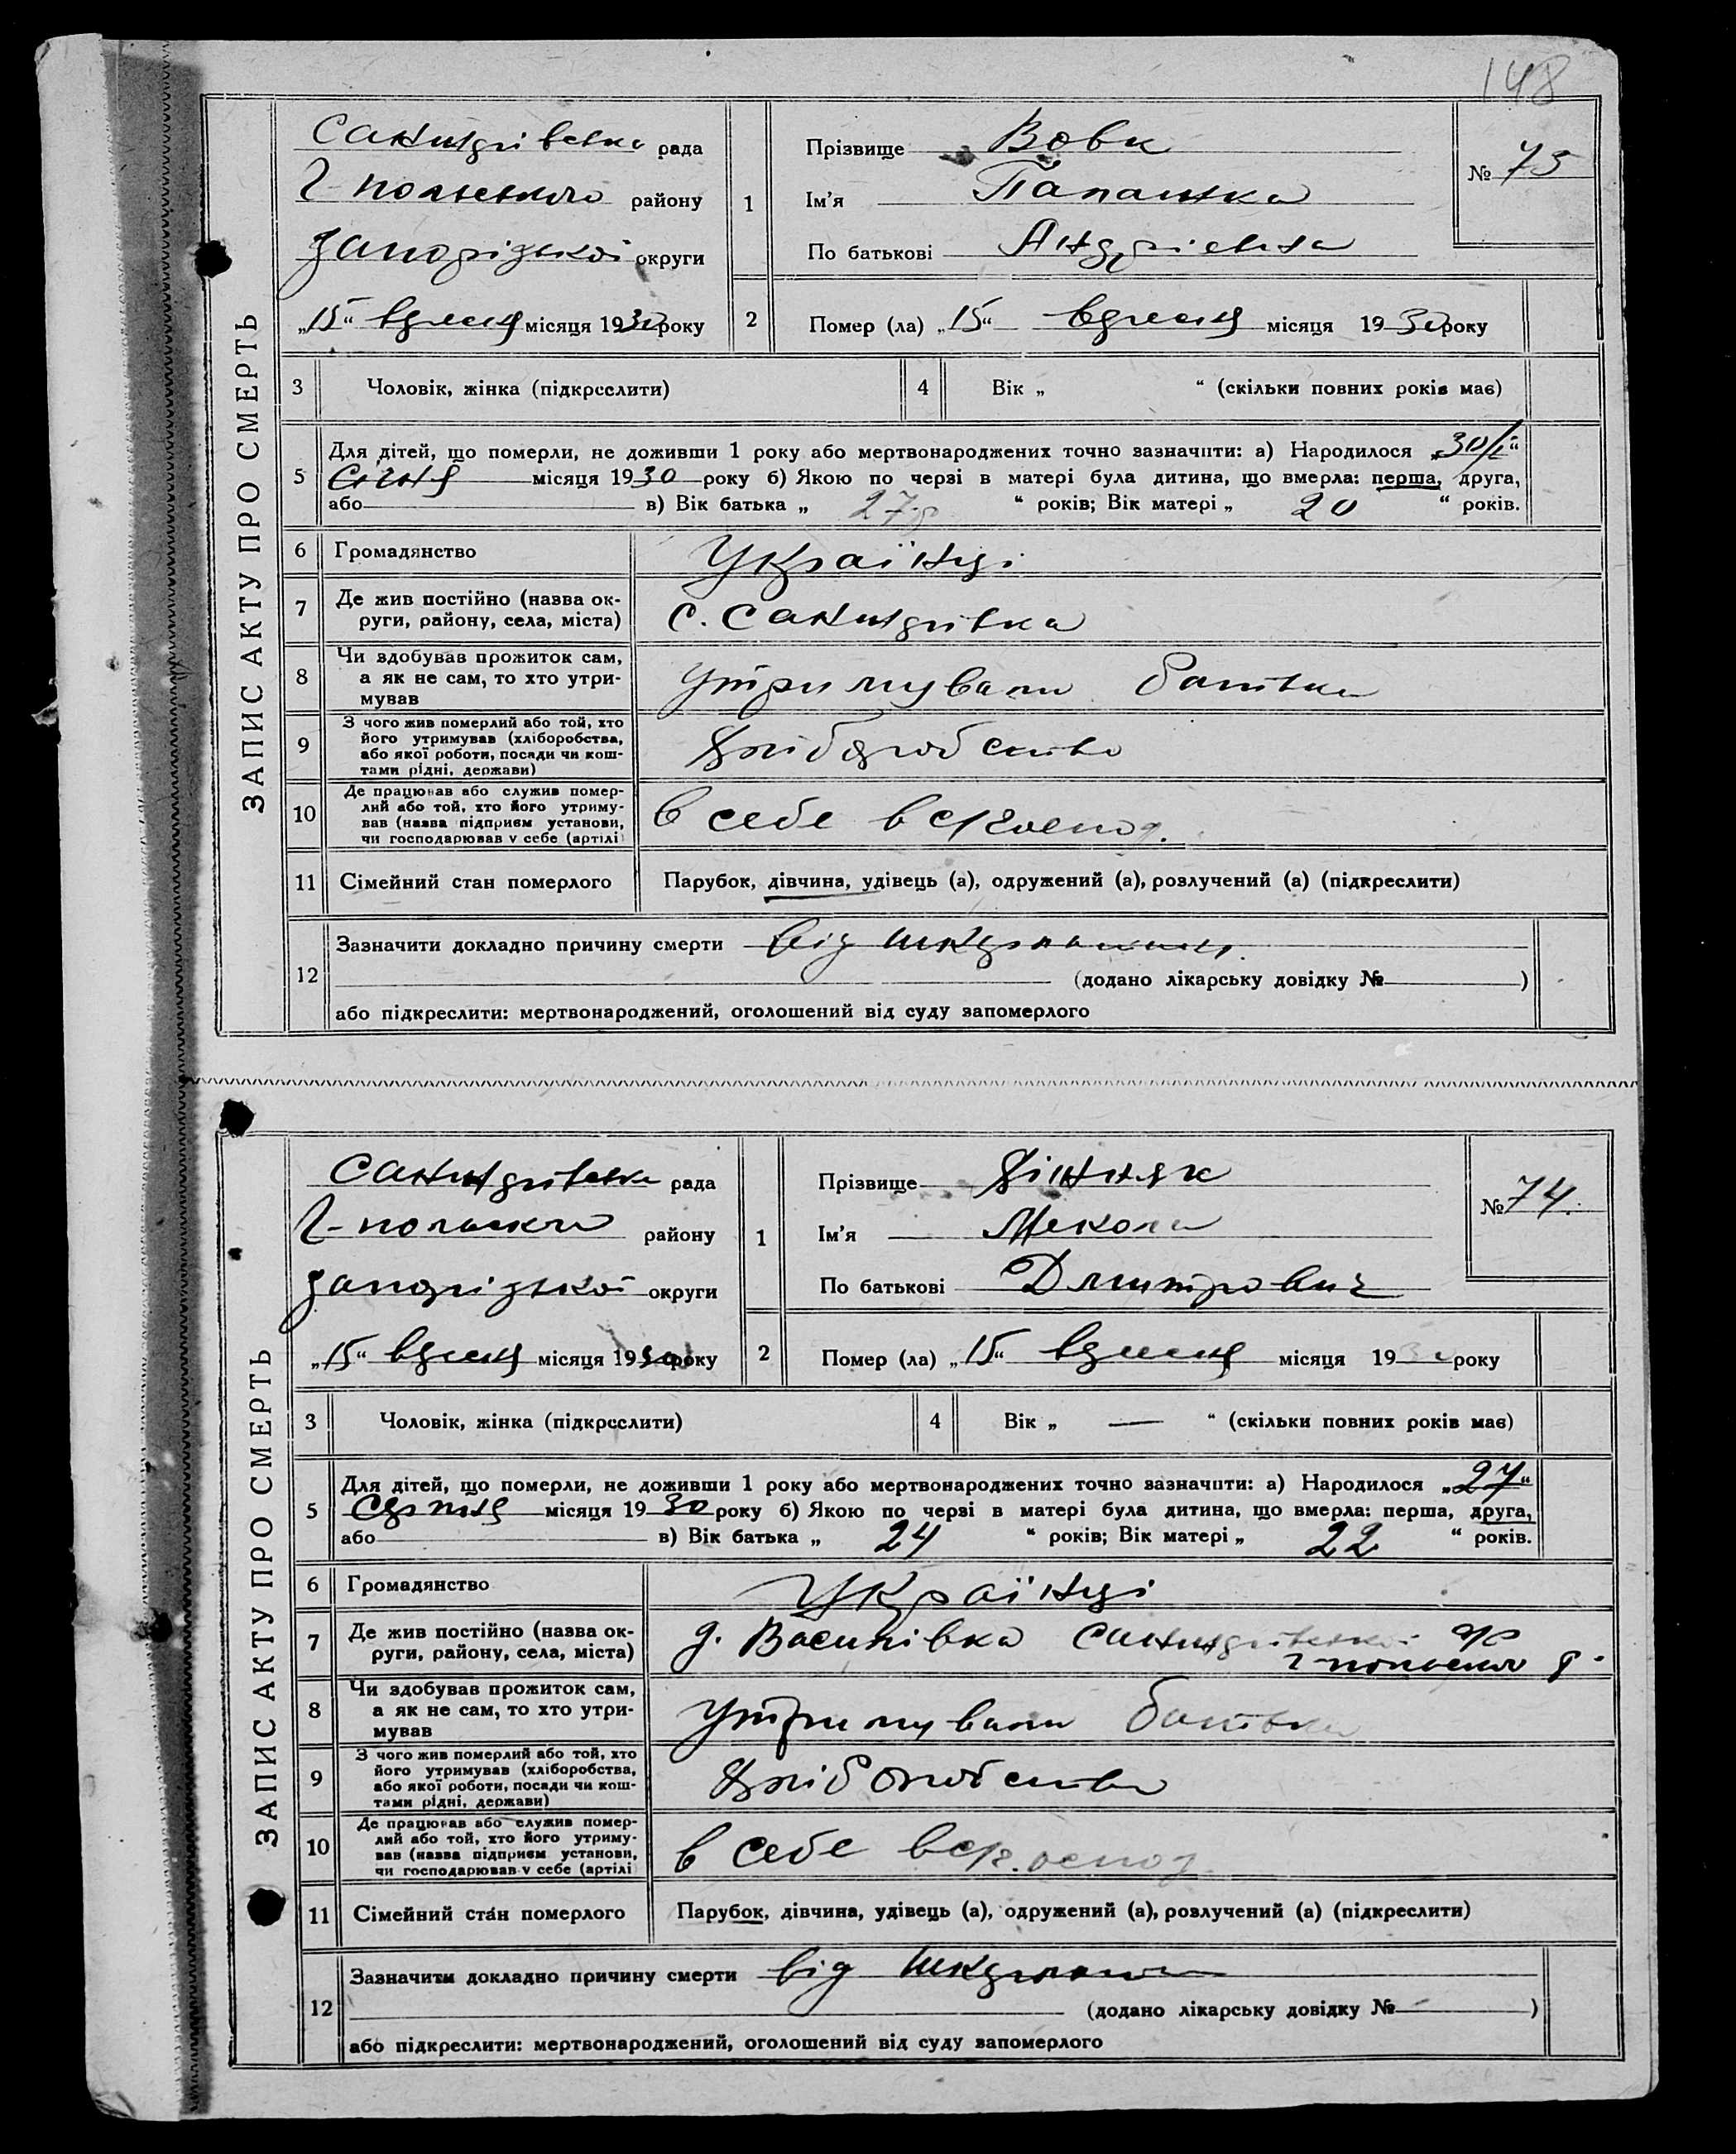 148
ЗАПИС АКТУ ПРО СМЕРТЬ
рада
району
Запорізької округи
„15“ вересня місяця 1930 року
1
Прізвище Вовк
Ім'я Палашка
По батькові Андріевна
№ 75
2
Помер (ла) „15“ вересня місяця 1930 року
3 Чоловік, жінка (підкреслити)
4 Вік „ “ (скільки повних років має)
5 Для дітей, що померли, не доживши 1 року або мертвонароджених точно зазначити: а) Народилося „30/I“
Січня місяця 1930 року б) Якою по черзі в матері була дитина, що вмерла: перша, друга,
або в) Вік батька „ 27 “ років; Вік матері „ 20 “ років.
6 Громадянство Українці
7 Де жив постійно (назва округи, району, села, міста) с.
8 Чи здобував прожиток сам, а як не сам, то хто утримував утримували батьки
9 З чого жив померлий або той, хто його утримував (хліборобства, або якої роботи, посади чи коштами рідні, держави) хліборобство
10 Де працював або служив померлий або той, хто його утримував (назва підприєм установи, чи господарював у себе (артілі) в себе в с/господ.
11 Сімейний стан померлого Парубок, дівчина, удівець (а), одружений (а), розлучений (а) (підкреслити)
12 Зазначити докладно причину смерти від
(додано лікарську довідку № )
або підкреслити: мертвонароджений, оголошений від суду запомерлого
ЗАПИС АКТУ ПРО СМЕРТЬ
рада
району
Запорізької округи
„15“ вересня місяця 1930 року
1
Прізвище
Ім'я Мекола
По батькові Дмитрович
№ 74.
2
Помер (ла) „15“ вересня місяця 1930 року
3 Чоловік, жінка (підкреслити)
4 Вік „ — “ (скільки повних років має)
5 Для дітей, що померли, не доживши 1 року або мертвонароджених точно зазначити: а) Народилося „27“
Серпня місяця 1930 року б) Якою по черзі в матері була дитина, що вмерла: перша, друга,
або в) Вік батька „ 24 “ років; Вік матері „ 22 “ років.
6 Громадянство Українці
7 Де жив постійно (назва округи, району, села, міста) д. Василівка
8 Чи здобував прожиток сам, а як не сам, то хто утримував утримували батьки
9 З чого жив померлий або той, хто його утримував (хліборобства, або якої роботи, посади чи коштами рідні, держави) хліборобство
10 Де працював або служив померлий або той, хто його утримував (назва підприєм установи, чи господарював у себе (артілі) в себе в с/г. оспод.
11 Сімейний стан померлого Парубок, дівчина, удівець (а), одружений (а), розлучений (а) (підкреслити)
12 Зазначити докладно причину смерти від
(додано лікарську довідку № )
або підкреслити: мертвонароджений, оголошений від суду запомерлого